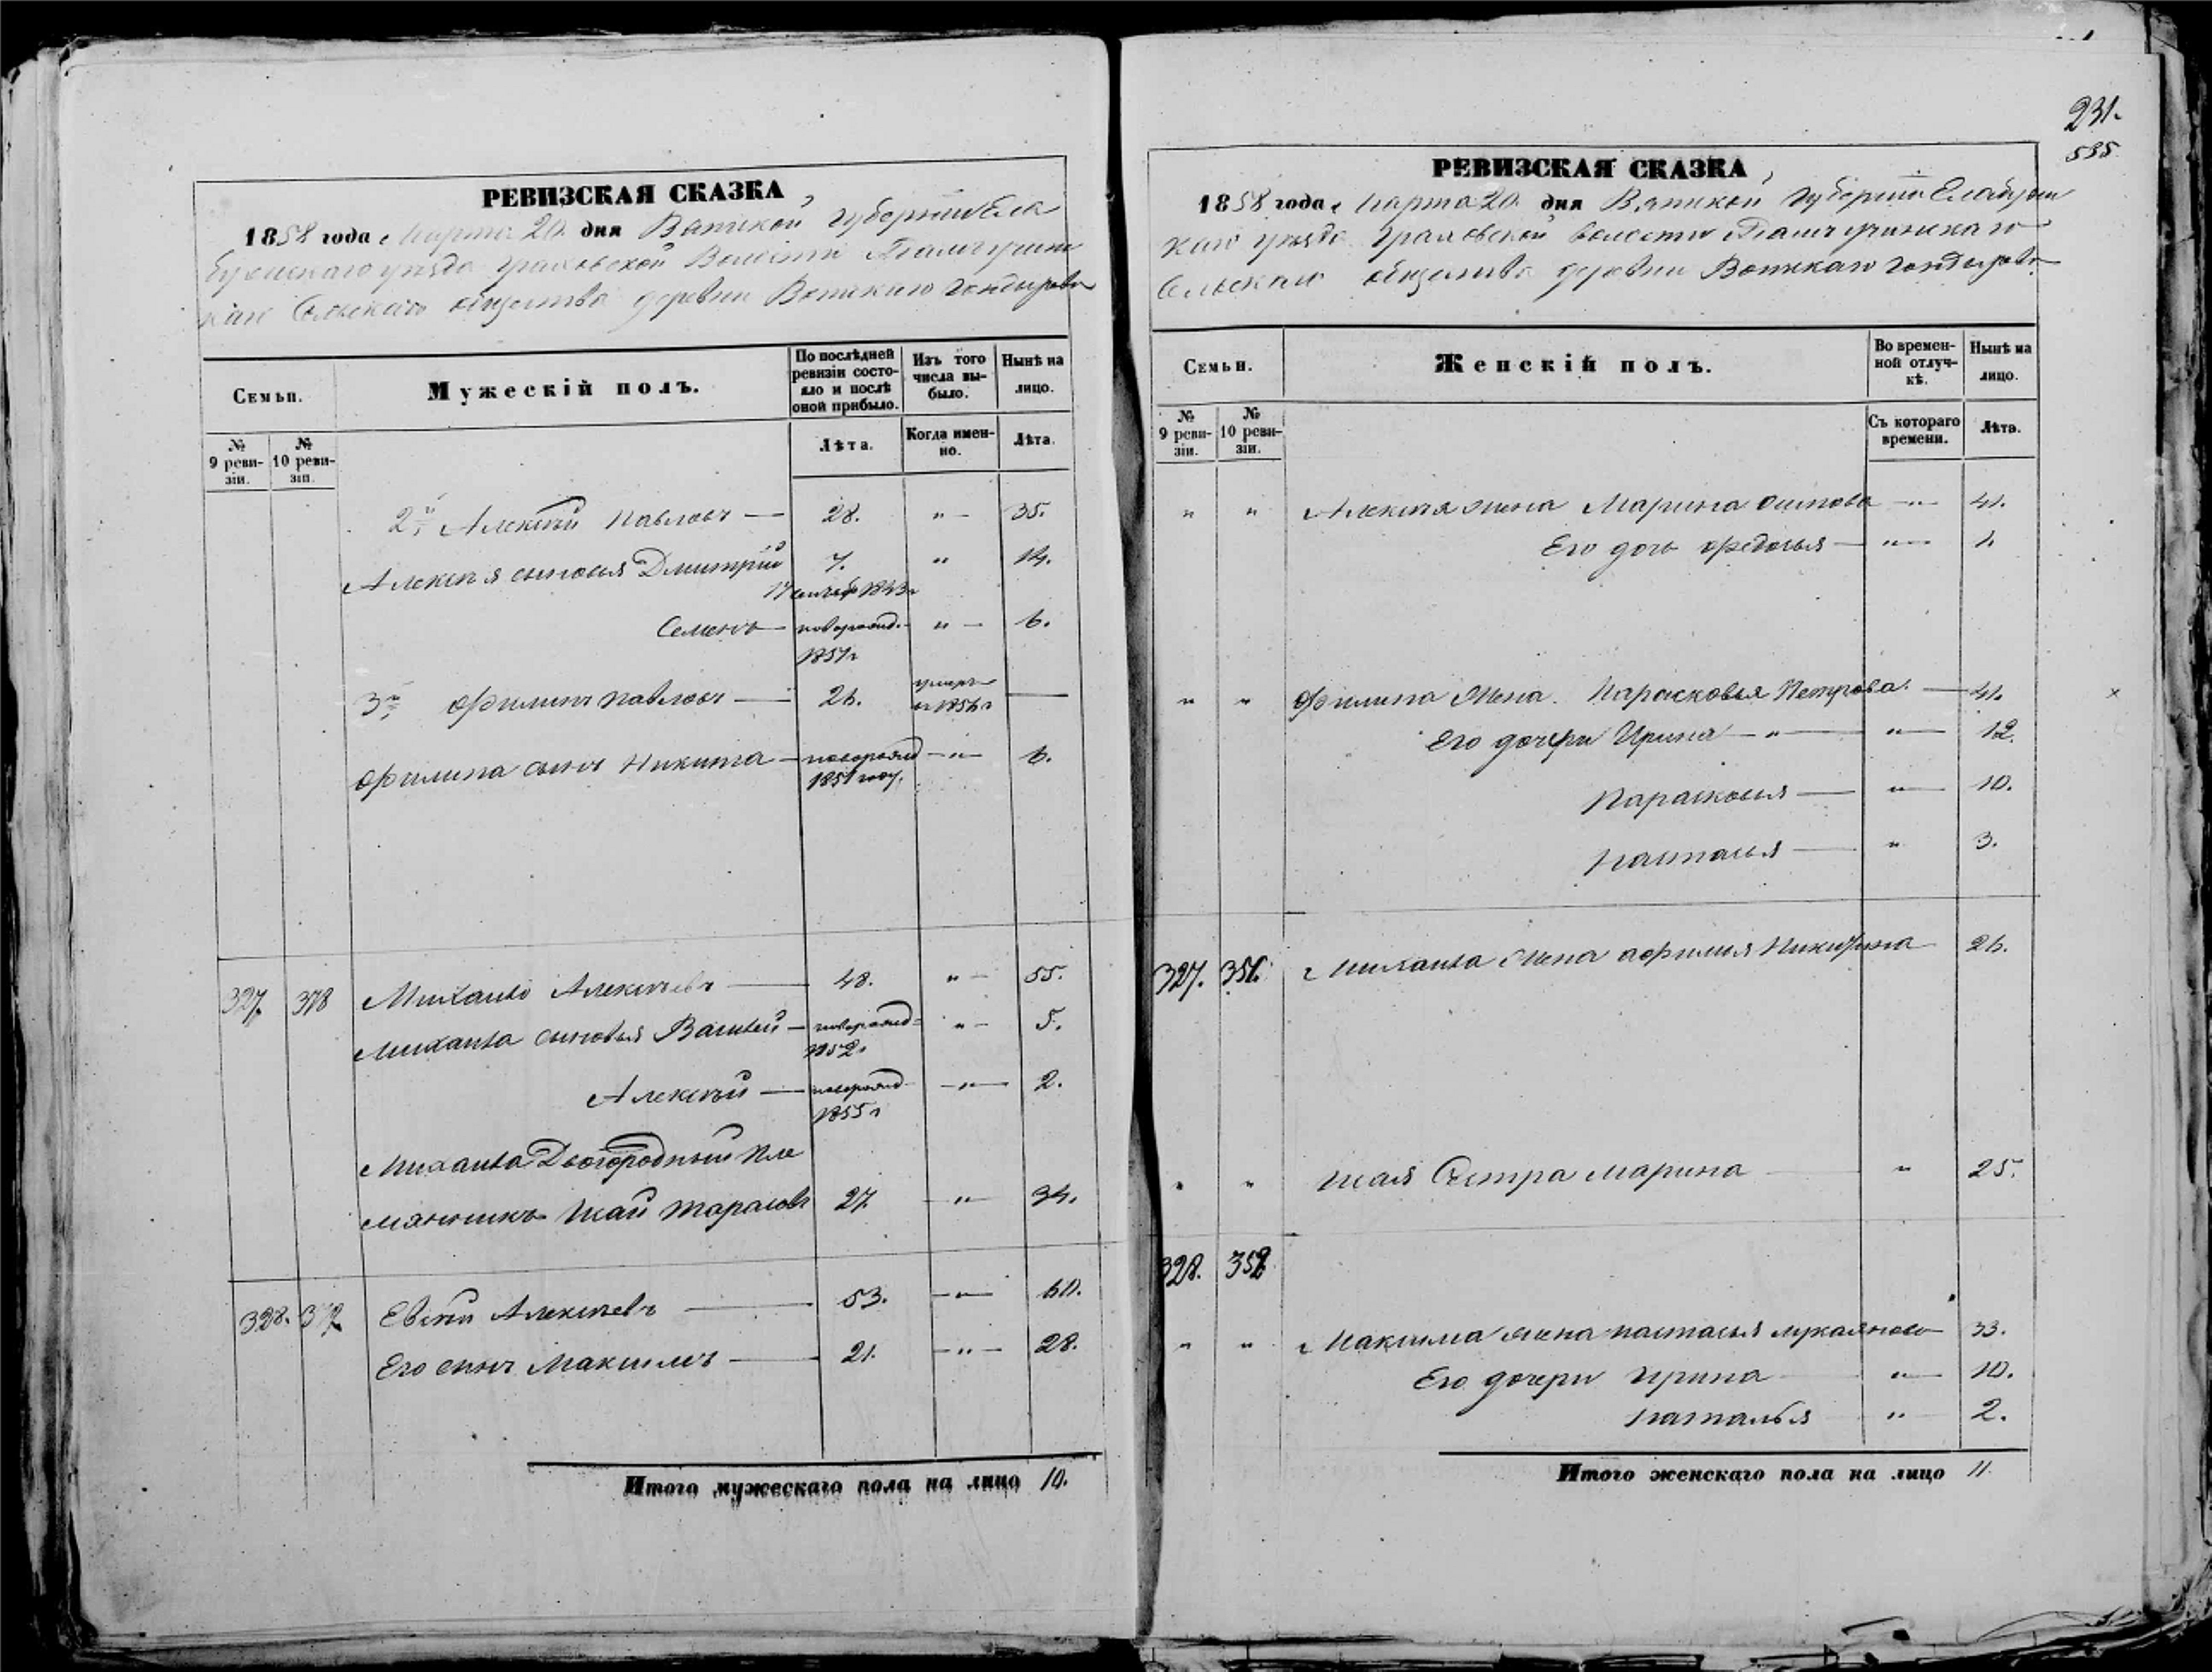 231.
535
РЕВИЗСКАЯ СКАЗКА
1858 года Марта 20 дня Вятской Губернии Ела-
бужскаго уезда Граховской Волости
каго Сельскаго общества деревни Вотскаго Гондырева
Семьи.
Мужескій полъ.
По послѣдней ревизіи состояло и послѣ оной прибыло.
Изъ того числа выбыло.
Нынѣ на лицо.
№ 9 ревизіи.
№ 10 ревизіи.
Лѣта.
Когда именно.
Лѣта.
2й Алексѣй Павловъ — 28. " — 35.
Алексѣя сыновья Дмитрій 7. " 14.
Семенъ — новорожд. " — 6.
1851г
3й Филипъ Павловъ — 26. умеръ —
в 1856 г
Филипа сынъ Никита — новорожд — " — 6.
1851 году.
327. 378 Михайло Алексѣевъ — 48. " — 55.
Михайла сыновья Василей — новорожд= " — 5.
1852г
Алексѣй — новорожд — " — 2.
1855 г
Михайла Двоюродный пле
мянникъ Исай Тарасовъ 27. — " — 34.
328. Евсѣй Алексѣевъ — 53. — " — 60.
Его сынъ Максимъ — 21. — " — 28.
Итого мужескаго пола на лицо 10.
РЕВИЗСКАЯ СКАЗКА
1858 года Марта 20. дня Вятской Губернии Елабужс
каго уезда Граховской волости
Сельскаго общества деревни Вотскаго Гондырева
Семьи.
Женскій полъ.
Во временной отлучкѣ.
Нынѣ на лицо.
№ 9 ревизіи.
№ 10 ревизіи.
Съ котораго времени.
Лѣта.
" " Алексѣя жена Марина Осипова — " — 41.
Его дочь Федосья — " — 1.
" " Филипа Жена Парасковья Петрова — 41.
Его дочери Ирина — " — " — 12.
Парасковья — " — 10.
Настасья — " 3.
327. 351. Михайла жена Афимья Никифорова 26.
" " Исая Сестра Марина — " 25.
328. 352
" " Максима жена Настасья Лукоянова 33.
Его дочери Ирина " — 10.
Наталья " — 2.
Итого женскаго пола на лицо 11.